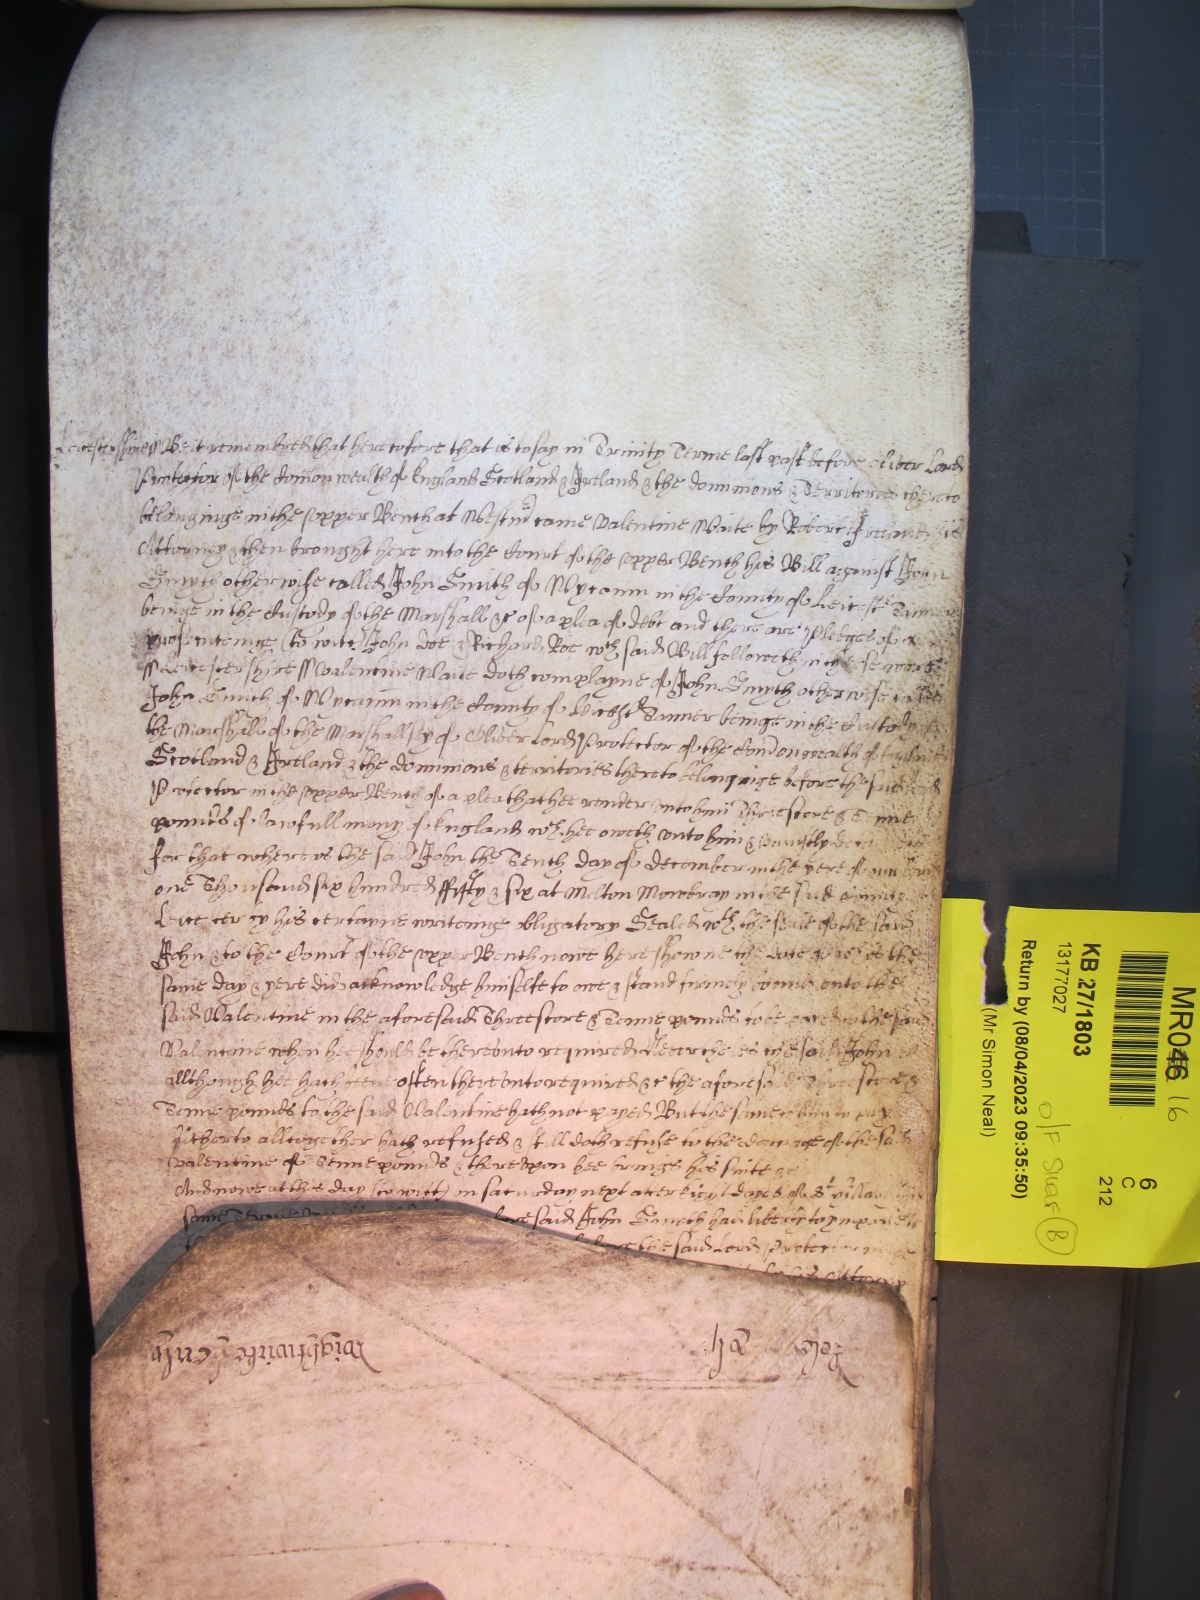 Leicestershire Be it remembred that heretofore that is to say in Trinity Terme last past before Oliver Lord
Protector of the Comon wealth of England Scotland & Ireland & the dominions & Territories thereto
belonginge in the upper Bench at Westmr came Valentine Waite by Robert Ireland his
Attorney & then brought here into the Court of the upper Bench his Bill against John
Smyth otherwise called John Smith of Wycamm in the County of Leicestr Tanner
beinge in the Custody of the Marshall &c of a plea of debt and there are Pledges of
prosecuteinge (to witt) John Doe & Richard Roe wch said Bill followeth in these words
Leicestershire Valentine Waite doth complayne of John Smyth otherwise called
John Smith of Wycamm in the County of Leicestr Tanner beinge in the Custody of
the Marshall of the Marshallsey of Oliver Lord Protector of the Comon wealth of England
Scotland & Ireland & the dominions & territories thereto belonginge before the said Lord
Protector in the upper Bench of a plea that hee render unto him Threescore & Tenne
pounds of lawfull mony of England wch hee oweth unto him & unjustly
for that whereas the said John the Tenth day of December in the yere of our Lord
one Thousand six hundred fifty & six at Melton Mowbray in the said County
by his certayne writeinge obligatory Sealed wth the seale of the said
John & to the Court of the upper Bench nowe here showne the date whereof is the
same day & yere did acknowledge himselfe to owe & stand firmely bound unto the
said Valentine in the aforesaid Threescore & Tenne pounds to be payed to the said
Valentine when hee should be thereunto required Neverthelesse the said John
allthough hee hath beene often thereunto required &c the aforesaid Threescore &
Tenne pounds to the said Valentine hath not payed But the same to him to pay
hitherto alltogether hath refused & still doth refuse to the damage of the said
Valentine of Tenne pounds & thereupon hee brings his suite &c
And nowe at this day (to witt) in saturday next after eight dayes of St Hillary
same Terme said John Smyth had liberty to imparle
the said Lord Protector in the
his Attorney
Wightwicke Custs
Rot
MR046 16
6
C
212
KB 27/1803
13177027
Return by (08/04/2023 09:35:50)
(Mr Simon Neal)
O/F Shelf B